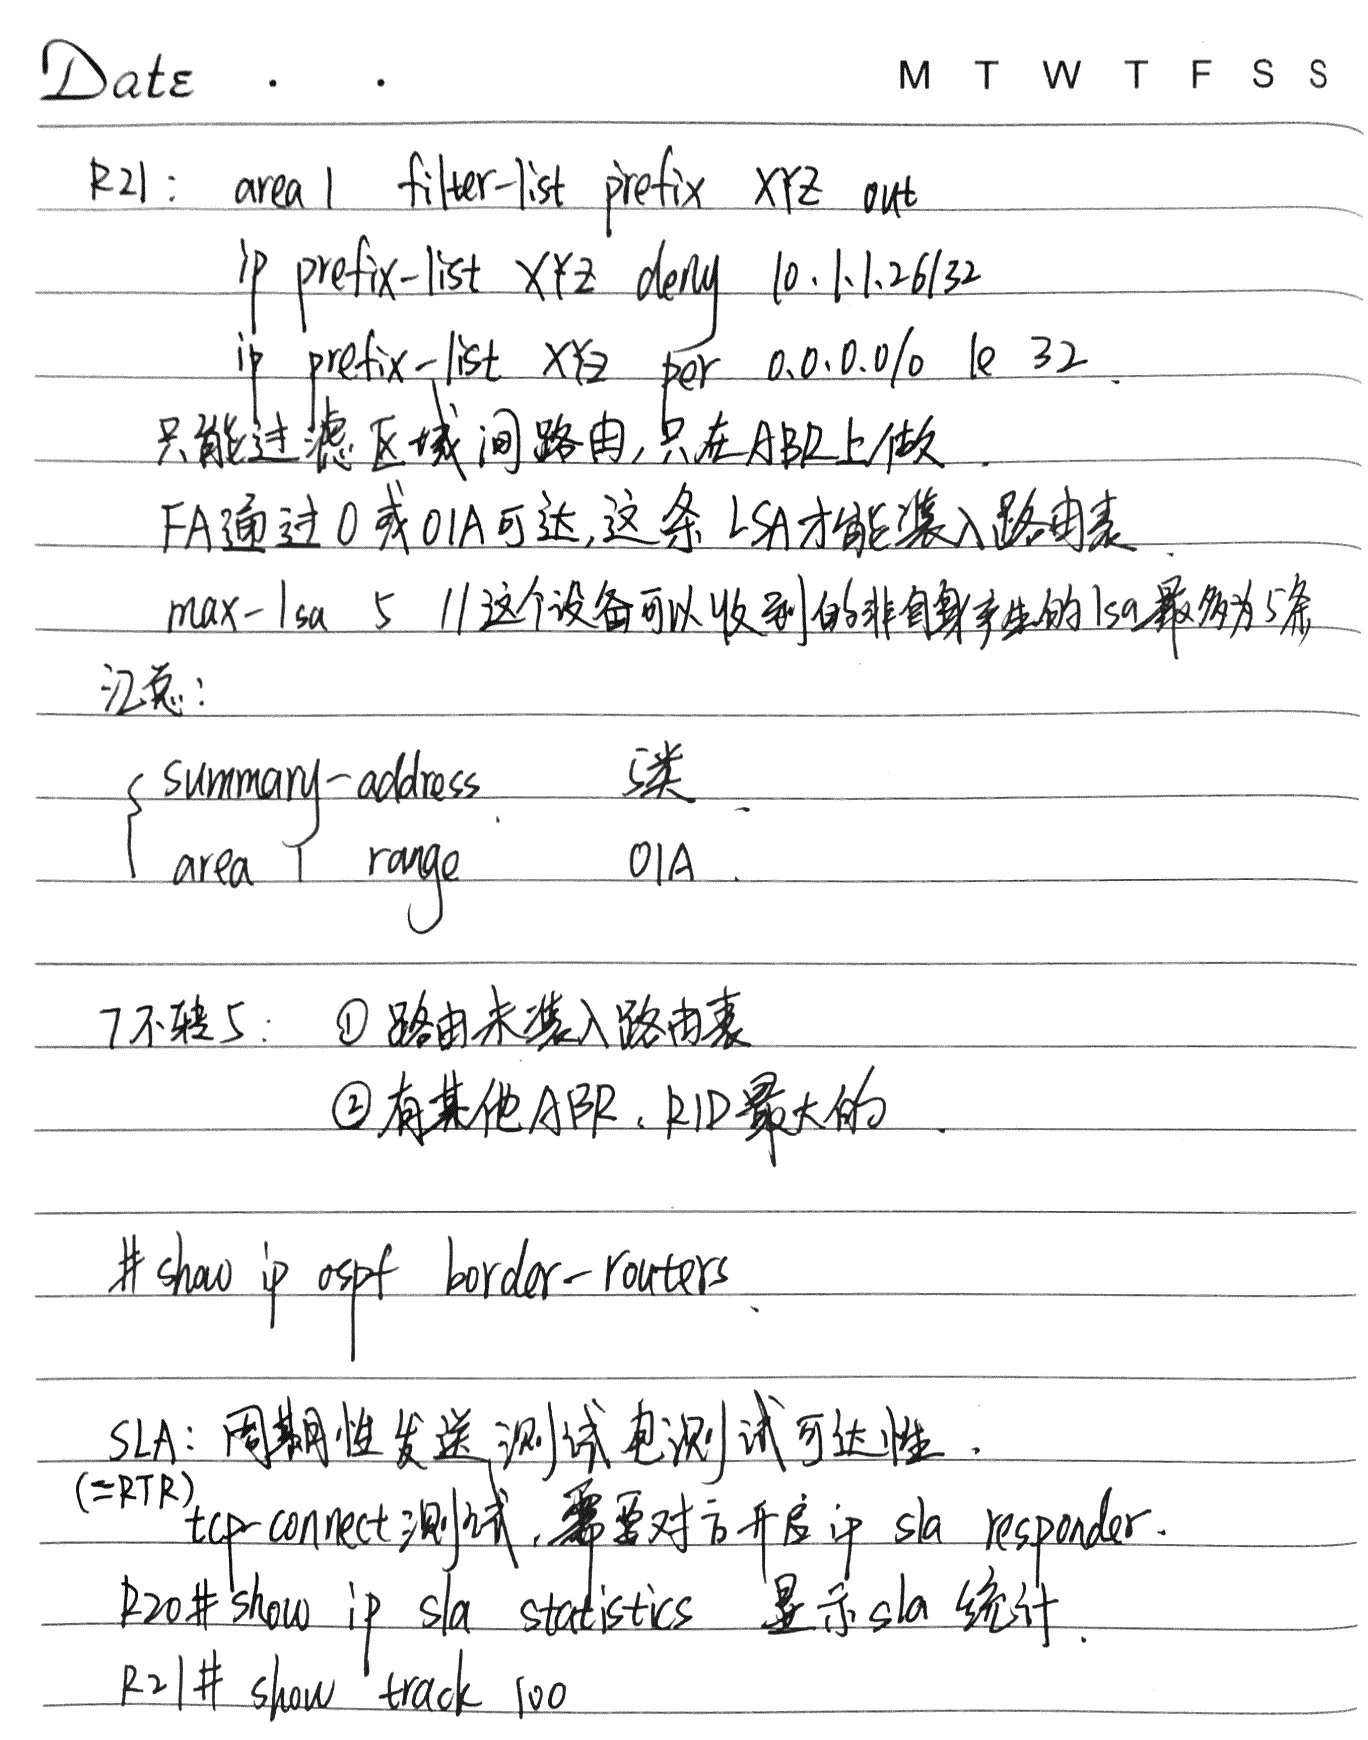 Date . .
M T W T F S S
R21: area 1 filter-list prefix XYZ out
ip prefix-list XYZ deny 10.1.1.26/32
ip prefix-list XYZ per 0.0.0.0/0 le 32.
只能过滤区域间路由,只在ABR上做.
FA通过O或OIA可达,这条LSA才能装入路由表.
max-lsa 5 //这个设备可以收到的非自身产生的lsa最多为5条
汇总:
summary-address. 5类.
area 1 range OIA.
7不转5: ①路由未装入路由表
②有其他ABR、RID最大的.
#show ip ospf border-routers.
SLA: 周期性发送测试包测试可达性.
(=RTR)
tcp-connect测试,需要对方开启ip sla responder.
R20#show ip sla statistics 显示sla统计.
R21# show track 100